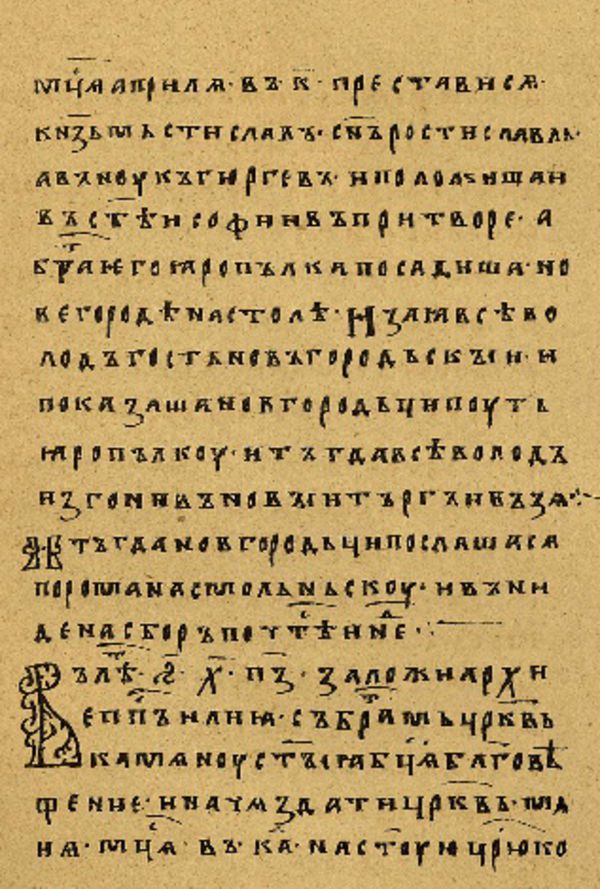 мц҃а априлѧ· въ к҃· прѣстависѧ·
кнѧзь мьстиславъ· сн҃ъ ростиславль·
а въноукъ гюргевъ· и положиша и
въ ст҃ѣи софии въ притворе· а
брат҃а ѥго ꙗропълка посадиша но
вегородѣ на столѣ· И заꙗ всѣво
лодъ гость новъгородьскыи· и
показаша новгородьци поуть
ꙗропълкоу· и тъгда всѣволодъ
изгони въ новыи търгъ и възѧ·
А въ тъгда новгородьци послашасѧ
по романа смольньскоу· и въни
де на сборъ по чт҃ѣние·
Въ лѣт҃· ҂ѕ҃· х҃· п҃з· заложи архи
еп҃пъ илиꙗ· съ брат҃мь црк҃вь
камѧноу ст҃ыꙗ бц҃ѧ благовѣ
щение· и начѧ здати црк҃вь· ма
иꙗ· мц҃ѧ· въ к҃а· на ст҃ою цр҃ю ко